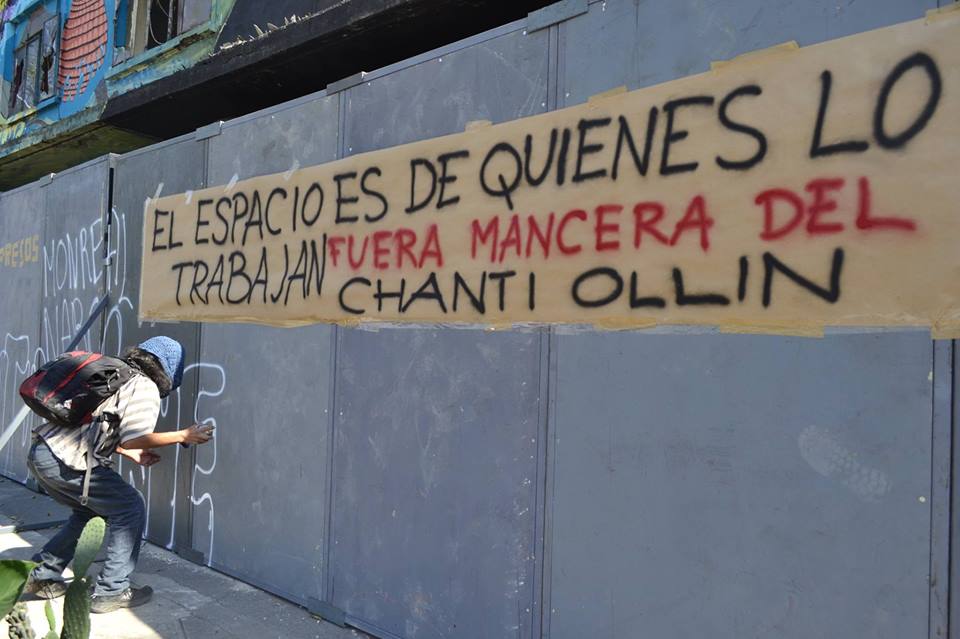 EL ESPACIO ES DE QUIENES LO
TRABAJAN FUERA MANCERA DEL
CHANTI OLLIN
PRESOS